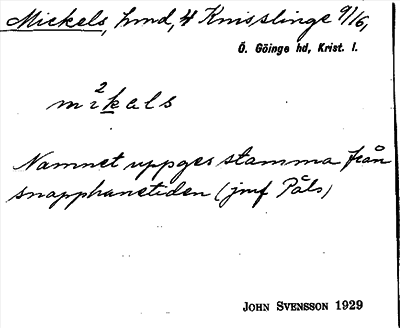 Mickels, hmd, 4 Knisslinge 9/6,
Ö. Göinge hd, Krist. l.
2
mikals
Namnet uppges stamma från
snapphanetiden (jmf Påls)
JOHN SVENSSON 1929